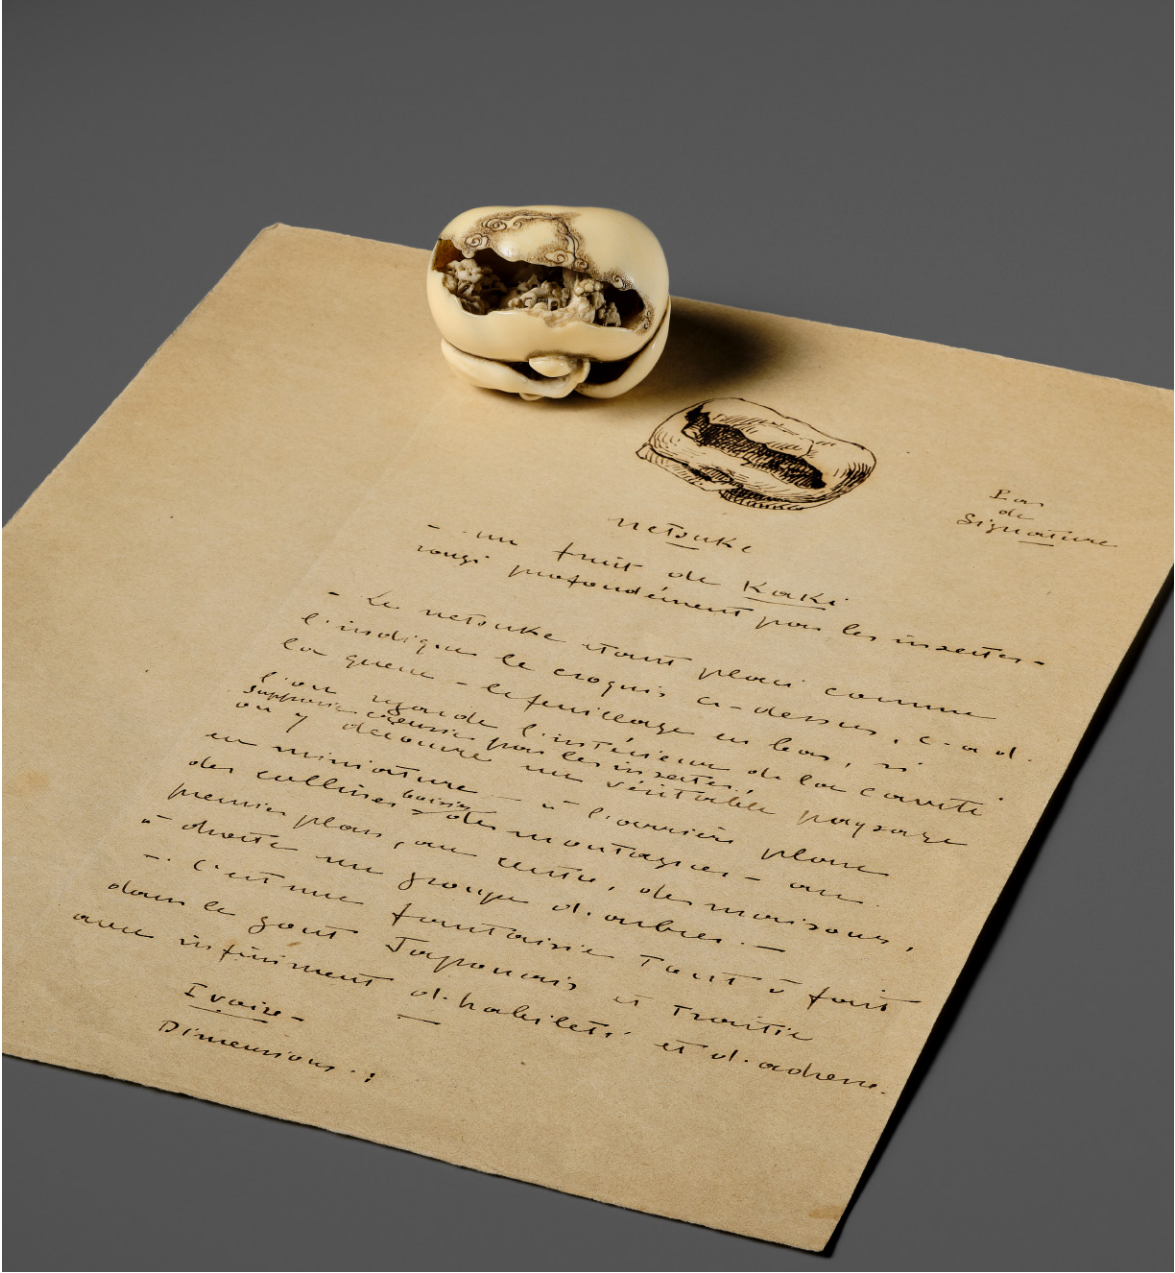 Pas
de
Signature
netsuke
- un fruit de Kaki
rongé profondément par les insectes -
- Le netsuke étant placé comme
l'indique le croquis ci-dessus, c.a d.
la queue - le feuillage en bas, si
l'on regarde l'intérieur de la cavité
supposée creusée par les insectes,
on y découvre un véritable paysage
en miniature - à l'arrière plan
des collines boisées des montagnes - au
premier plan, au centre, des maisons,
à droite un groupe d'arbres. -
- C'est une fantaisie tout à fait
dans le goût Japonais et traitée
avec infiniment d'habileté et d'adresse.
Ivoire -
Dimensions. :